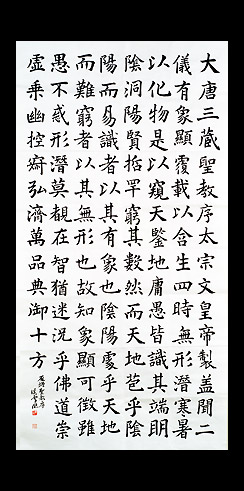 大唐三藏聖教序太宗文皇帝製蓋聞二
儀有象顯覆載以含生四時無形潛寒暑
以化物是以窺天鑒地庸愚皆識其端明
陰洞陽賢哲罕窮其數然而天地苞乎陰
陽而易識者以其有象也陰陽處乎天地
而難窮者以其無形也故知象顯可徵雖
愚不惑形潛莫覩在智猶迷況乎佛道崇
虛乘幽控寂弘濟萬品典御十方
聖教序